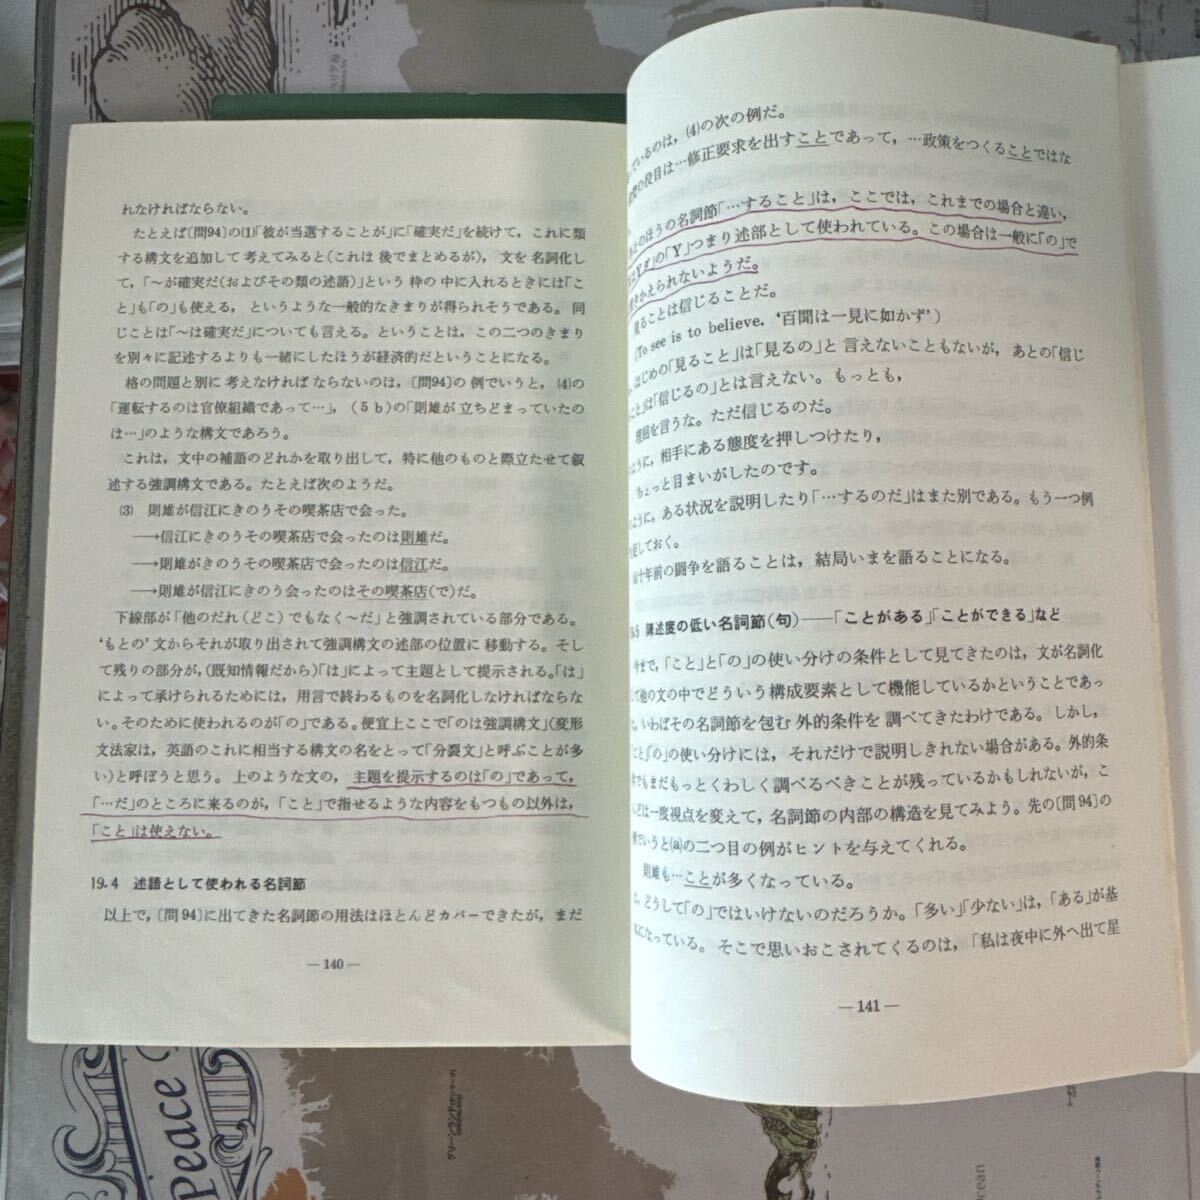 れなければならない。
たとえば〔問94〕の(1)「彼が当選することが」に「確実だ」を続けて，これに類
する構文を追加して考えてみると(これは後でまとめるが)，文を名詞化し
て，「～が確実だ(およびその類の述語)」という枠の中に入れるときには「こ
と」も「の」も使える，というような一般的なきまりが得られそうである。同
じことは「～は確実だ」についても言える。ということは，この二つのきまり
を別々に記述するよりも一緒にしたほうが経済的だということになる。
格の問題と別に考えなければならないのは，〔問94〕の例でいうと，(4)の
「運転するのは官僚組織であって…」，(5b)の「則雄が立ちどまっていたの
は…」のような構文であろう。
これは，文中の補語のどれかを取り出して，特に他のものと際立たせて叙
述する強調構文である。たとえば次のようだ。
(3) 則雄が信江にきのうその喫茶店で会った。
→信江にきのうその喫茶店で会ったのは則雄だ。
→則雄がきのうその喫茶店で会ったのは信江だ。
→則雄が信江にきのう会ったのはその喫茶店(で)だ。
下線部が「他のだれ(どこ)でもなく～だ」と強調されている部分である。
‘もとの’文からそれが取り出されて強調構文の述部の位置に移動する。そし
て残りの部分が，(既知情報だから)「は」によって主題として提示される。「は」
によって承けられるためには，用言で終わるものを名詞化しなければならな
い。そのために使われるのが「の」である。便宜上ここで「のは強調構文」(変形
文法家は，英語のこれに相当する構文の名をとって「分裂文」と呼ぶことが多
い)と呼ぼうと思う。上のような文の，主題を提示するのは「の」であって，
「…だ」のところに来るのが，「こと」で指せるような内容をもつもの以外は，
「こと」は使えない。
19.4 述語として使われる名詞節
以上で，〔問94〕に出てきた名詞節の用法はほとんどカバーできたが，まだ
—140—
ているのは，(4)の次の例だ。
の役目は…修正要求を出すことであって，…政策をつくることではな
のほうの名詞節「…すること」は，ここでは，これまでの場合と違い，
「Y」つまり述部として使われている。この場合は一般に「の」で
きかえられないようだ。
見ることは信じることだ。
(To see is to believe. ‘百聞は一見に如かず’)
はじめの「見ること」は「見るの」と言えないこともないが，あとの「信じ
こと」は「信じるの」とは言えない。もっとも，
理屈を言うな。ただ信じるのだ。
ように，相手にある態度を押しつけたり，
ちょっと目まいがしたのです。
ように，ある状況を説明したり「…するのだ」はまた別である。もう一つ例
足しておく。
十年前の闘争を語ることは，結局いまを語ることになる。
.5 陳述度の低い名詞節(句)——「ことがある」「ことができる」など
今まで，「こと」と「の」の使い分けの条件として見てきたのは，文が名詞化
て他の文の中でどういう構成要素として機能しているかということであっ
いわばその名詞節を包む外的条件を調べてきたわけである。しかし，
こと」「の」の使い分けには，それだけで説明しきれない場合がある。外的条
でもまだもっとくわしく調べるべきことが残っているかもしれないが，こ
どは一度視点を変えて，名詞節の内部の構造を見てみよう。先の〔問94〕の
でいうと(a)の二つ目の例がヒントを与えてくれる。
則雄も…ことが多くなっている。
どうして「の」ではいけないのだろうか。「多い」「少ない」は，「ある」が基
になっている。そこで思いおこされてくるのは，「私は夜中に外へ出て星
—141—
Peace